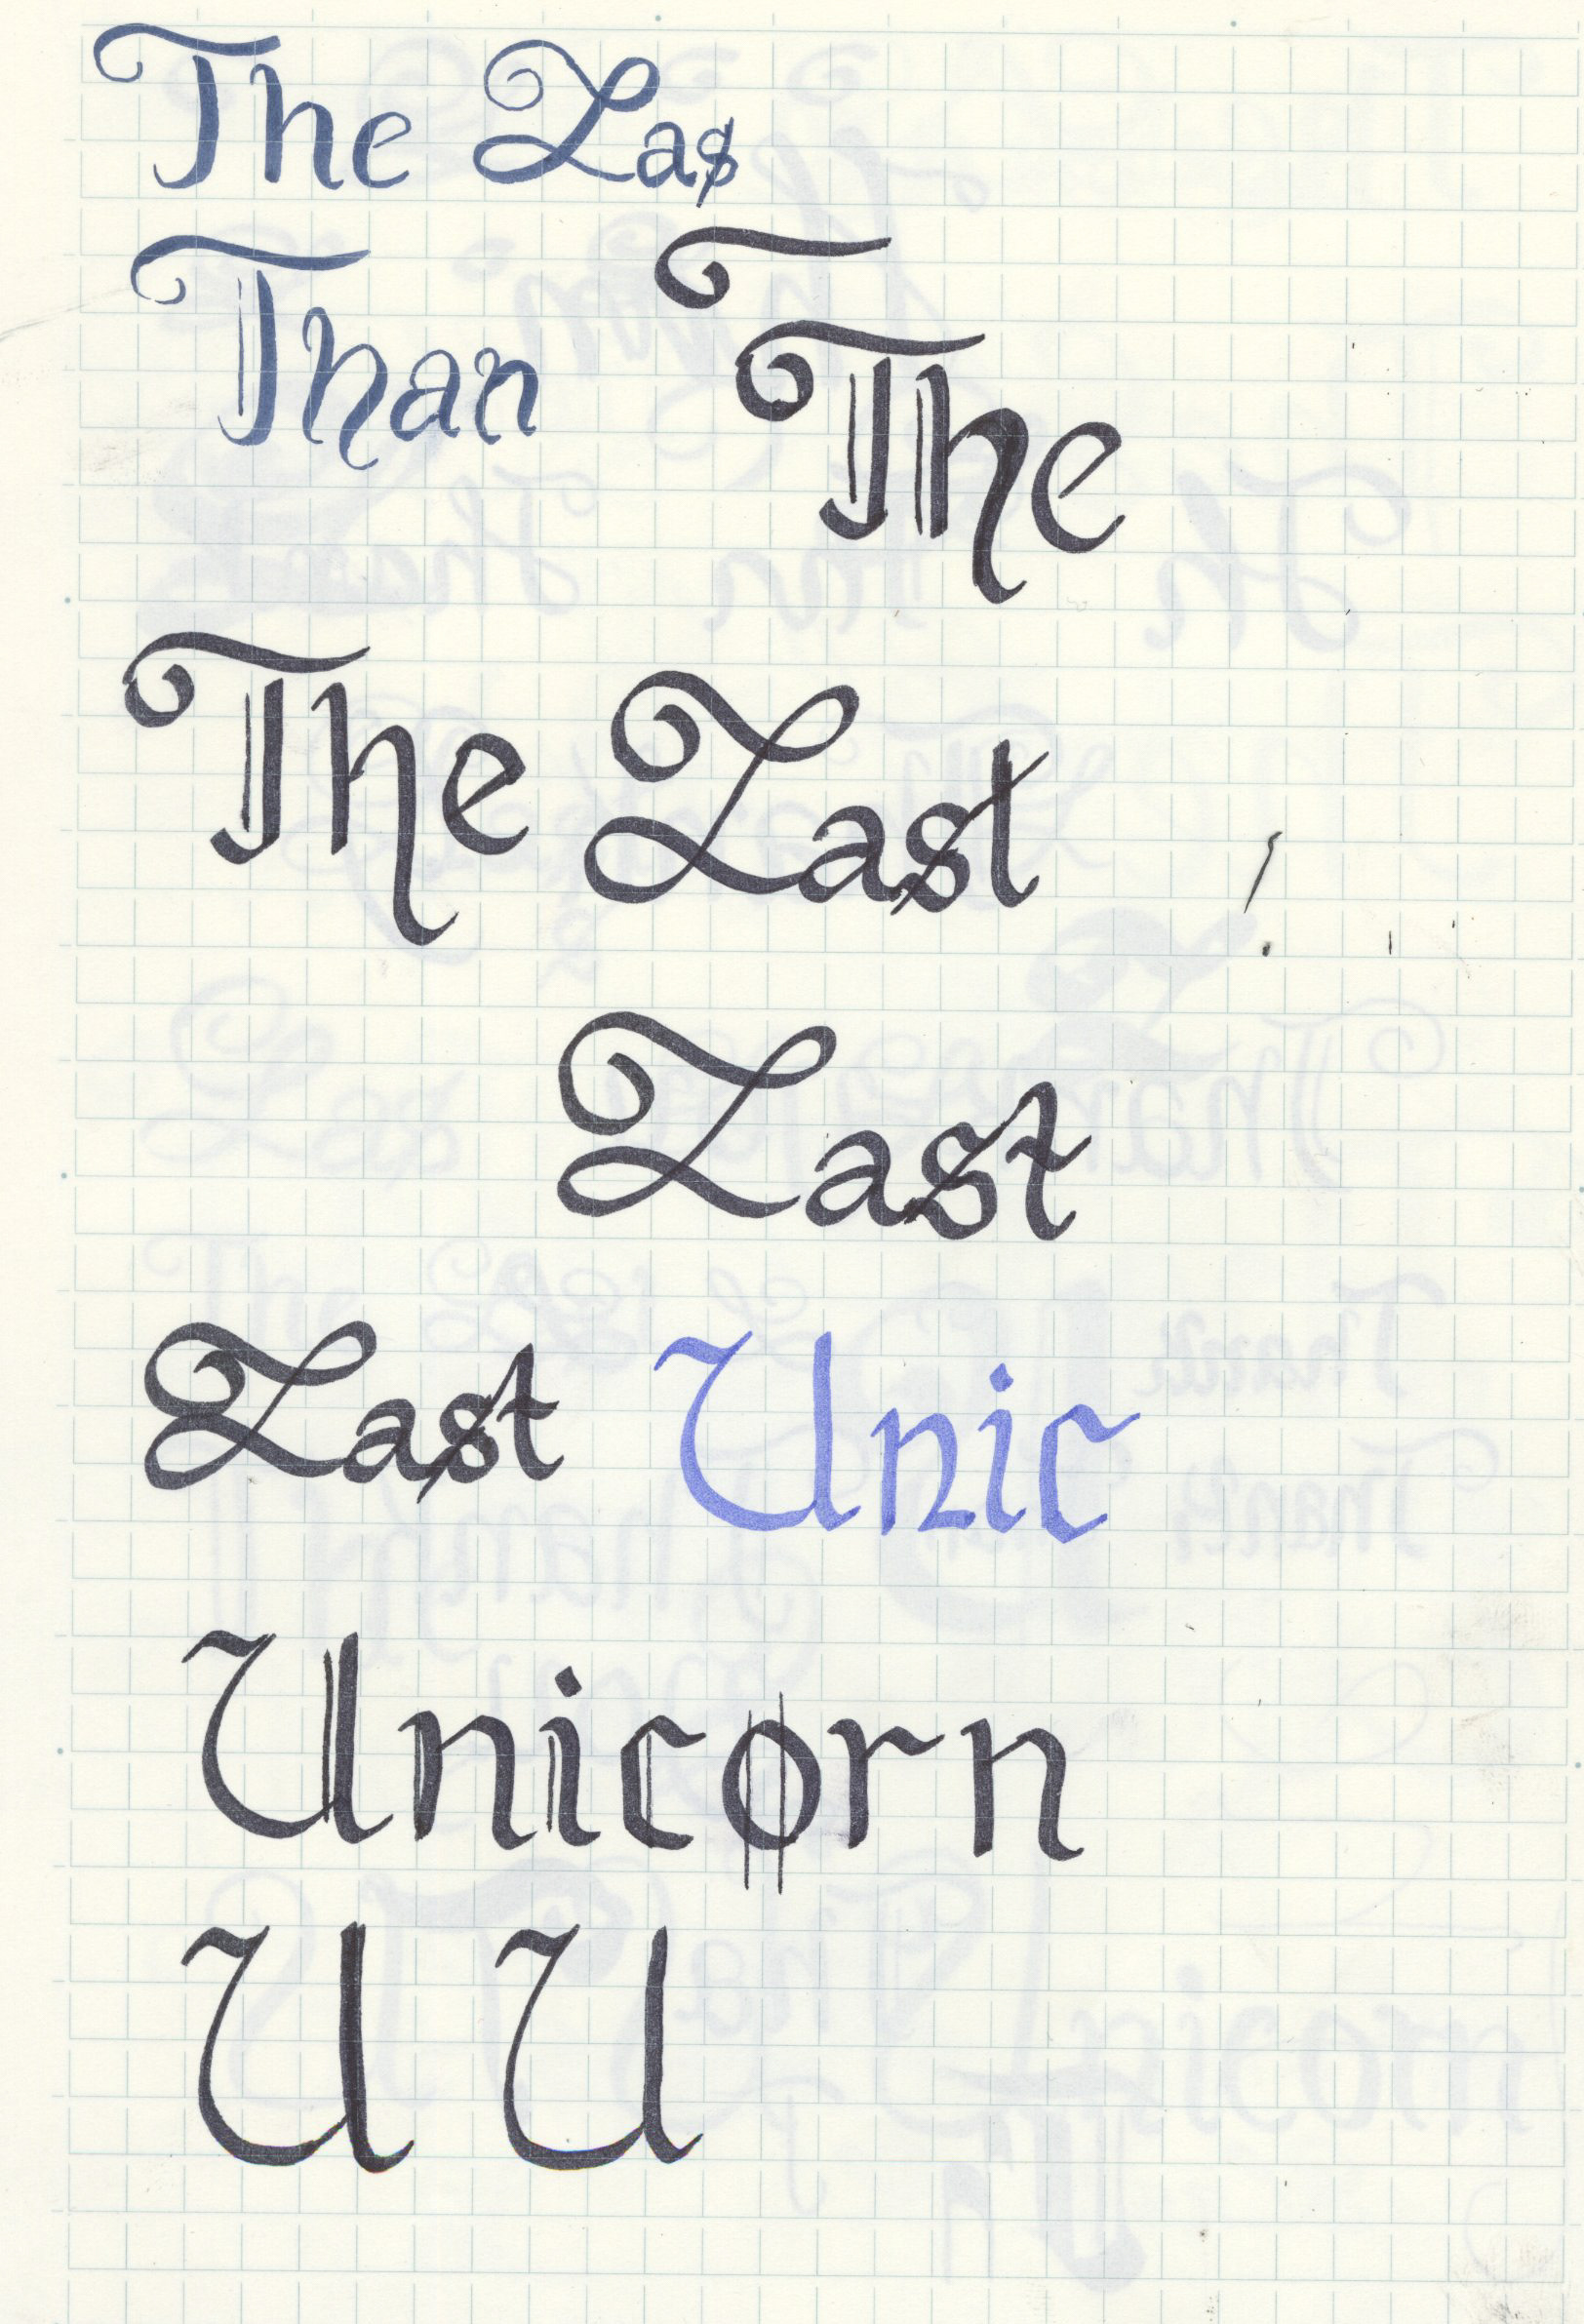 The Las
Than
The
The Last
Last
Last Unic
Unicorn
U U